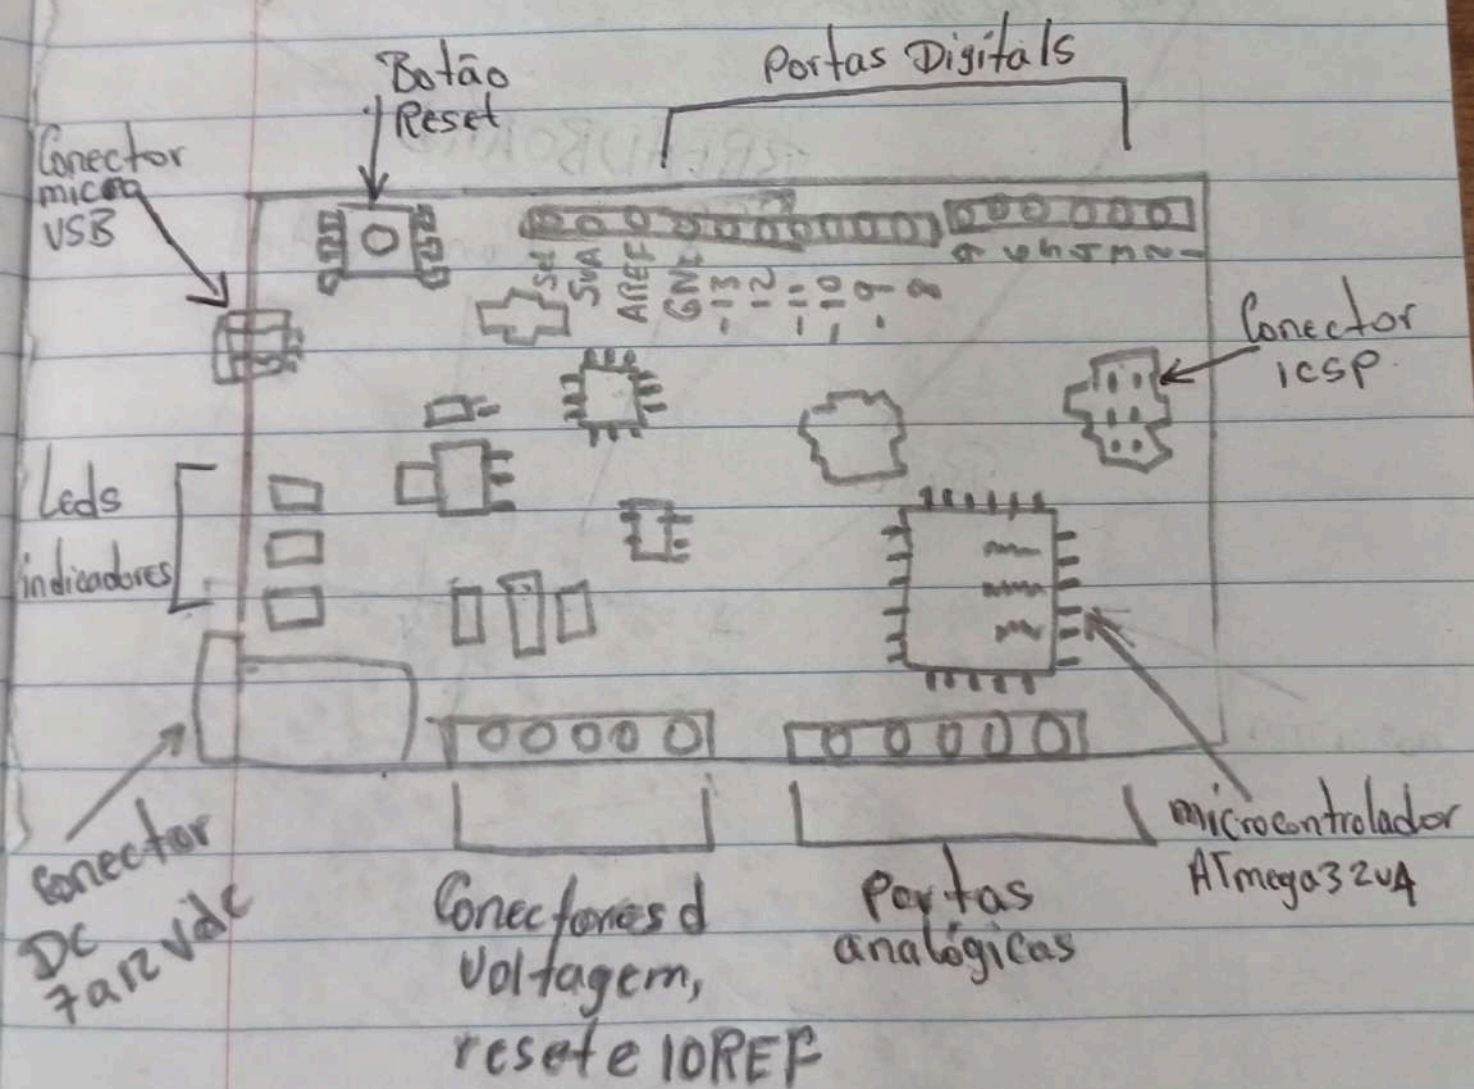 Botão
Reset
Portas Digitals
Conector
micro
USB
AREF
GND
-13
12
-11
-10
-9
8
Conector
ICSP
Leds
indicadores
Conector
DC
7 a 12 Vdc
Conectores d
Voltagem,
reset e IOREF
Portas
analógicas
microcontrolador
ATmega32u4